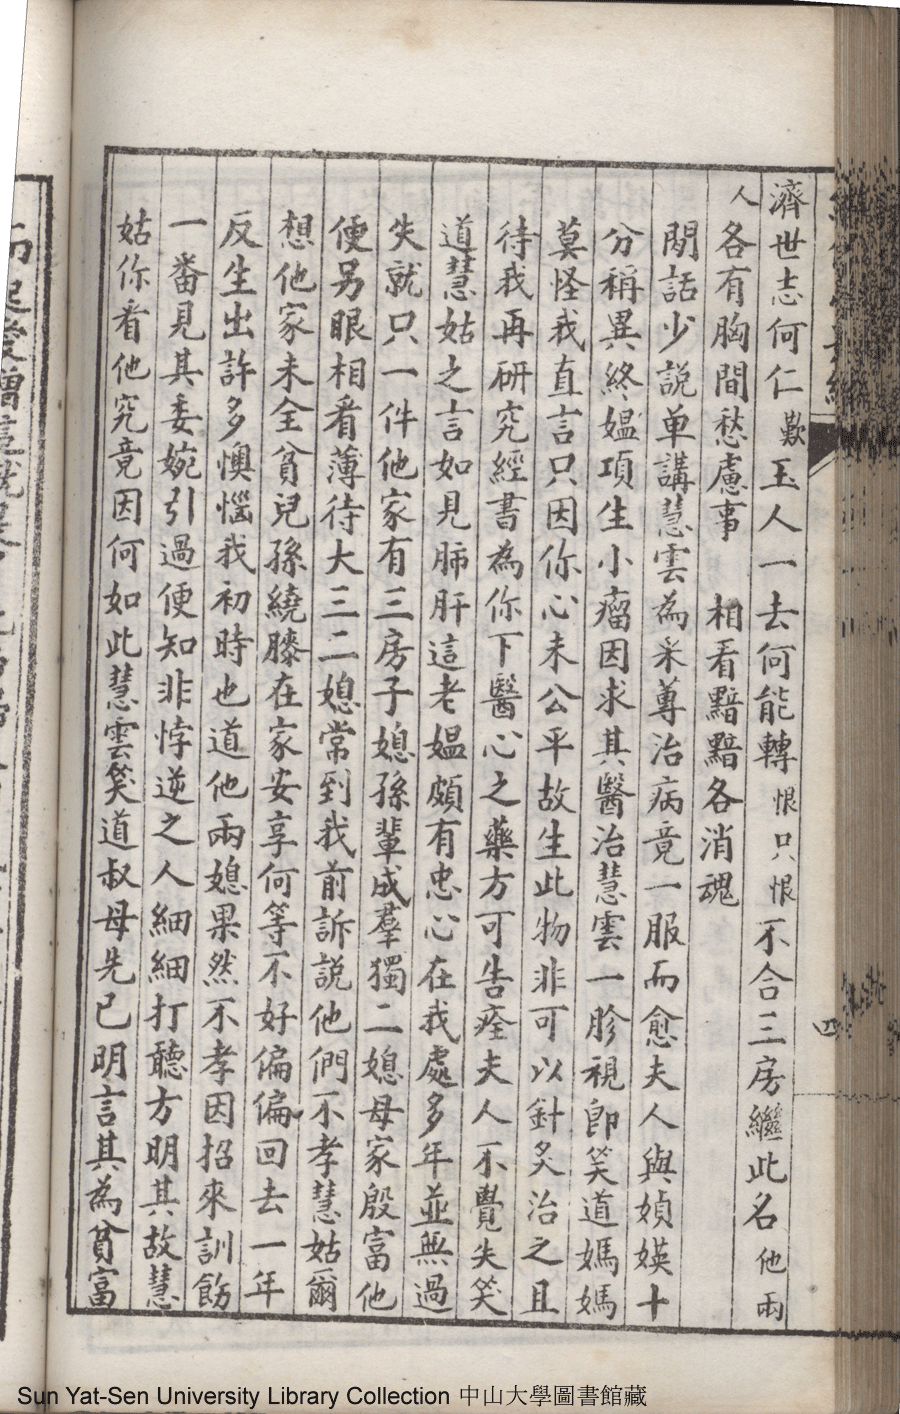 濟世志何仁歎玉人一去何能轉恨只恨不合三房繼此名他兩
人各有胸間愁慮事　相看黯黯各消魂
閒話少說单講慧雲為采蓴治病竟一服而愈夫人與媜媖十
分稱異終媼項生小瘤因求其醫治慧雲一胗視即笑道媽媽
莫怪我直言只因你心未公平故生此物非可以針炙治之且
待我再研究經書為你下醫心之藥方可告痊夫人不覺失笑
道慧姑之言如見肺肝這老媼頗有忠心在我處多年並無過
失就只一件他家有三房子媳孫輩成羣獨二媳母家殷富他
便另眼相看薄待大三二媳常到我前訴說他們不孝慧姑爾
想他家未全貧兒孫繞膝在家安享何等不好偏偏回去一年
反生出許多懊惱我初時也道他兩媳果然不孝因招來訓飭
一畨見其委婉引過便知非悖逆之人細細打聽方明其故慧
姑你看他究竟因何如此慧雲笑道叔母先已明言其為貧富
四
Sun Yat-Sen University Library Collection 中山大學圖書館藏